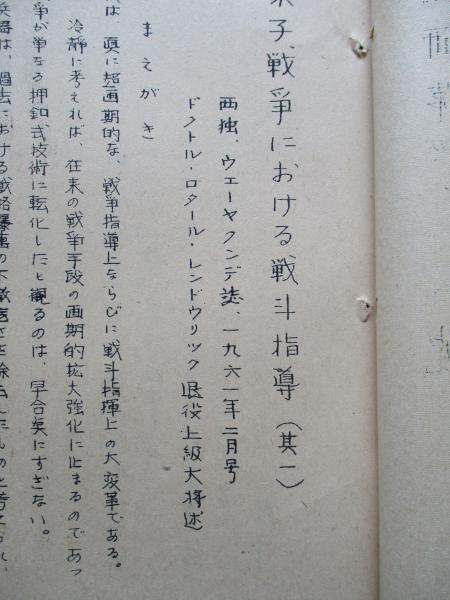 子戦争における戦斗指導（其一）
西独、ウェーヤクンデ誌、一九六一年二月号
ドクトル・ロタール・レンドウリック退役上級大将述）
まえがき
は、真に超画期的な、戦争指導上ならびに戦斗指揮上の大変革である。
冷静に考えれば、在来の戦争手段の画期的拡大強化に止まるのであっ
争が単なる押釦式技術に転化したと観るのは、早合点にすぎない。
兵器は、過去における戦略爆撃の不徹底さを除去したものと考え